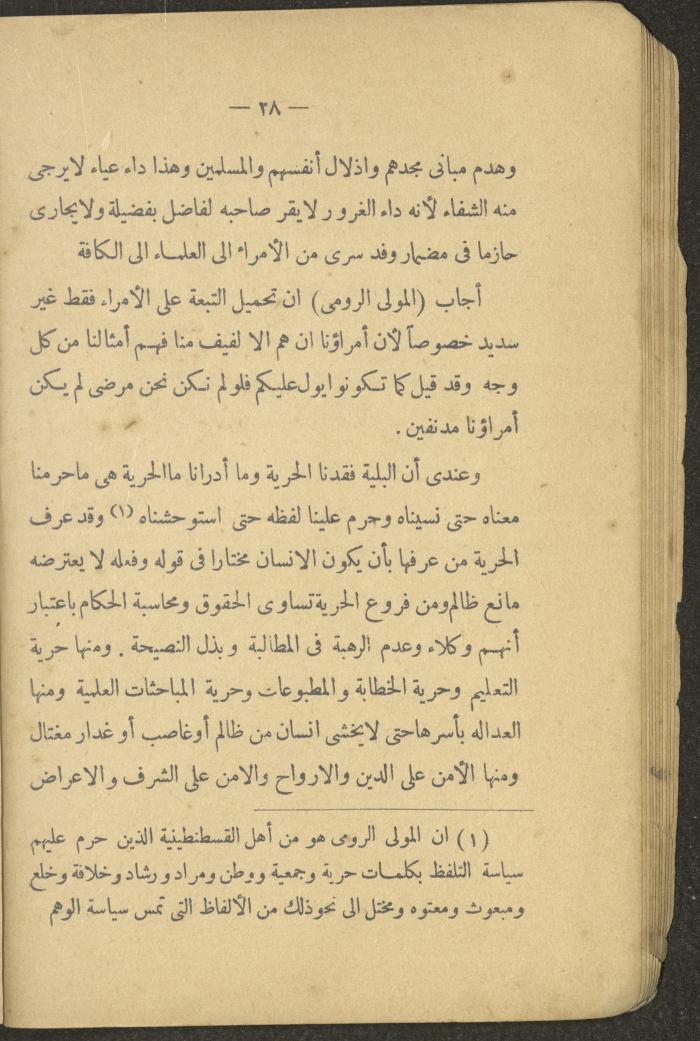 — ٢٨ —
وهدم مبانى مجدهم واذلال أنفسهم والمسلمين وهذا داء عياء لايرجى
منه الشفاء لأنه داء الغرور لايقر صاحبه لفاضل بفضيلة ولايجارى
حازما فى مضمار وفد سرى من الأمراء الى العلماء الى الكافة
أجاب (المولى الرومى) ان تحميل التبعة على الأمراء فقط غير
سديد خصوصاً لأن أمراؤنا ان هم الا لفيف منا فهم أمثالنا من كل
وجه وقد قيل كما تكونوا يول عليكم فلو لم نكن نحن مرضى لم يكن
أمراؤنا مدنفين .
وعندى أن البلية فقدنا الحرية وما أدرانا ماالحرية هى ماحرمنا
معناه حتى نسيناه وحرم علينا لفظه حتى استوحشناه (١) وقد عرف
الحرية من عرفها بأن يكون الانسان مختارا فى قوله وفعله لا يعترضه
مانع ظالم ومن فروع الحرية تساوى الحقوق ومحاسبة الحكام باعتبار
أنهم وكلاء وعدم الرهبة فى المطالبة وبذل النصيحة . ومنها حرية
التعليم وحرية الخطابة والمطبوعات وحرية المباحثات العلمية ومنها
العداله بأسرها حتى لايخشى انسان من ظالم أوغاصب أو غدار مغتال
ومنها الأمن على الدين والارواح والامن على الشرف والاعراض
(١) ان المولى الرومى هو من أهل القسطنطينية الذين حرم عليهم
سياسة التلفظ بكلمات حرية وجمعية ووطن ومراد ورشاد وخلافة وخلع
ومبعوث ومعتوه ومختل الى نحوذلك من الألفاظ التى تمس سياسة الوهم